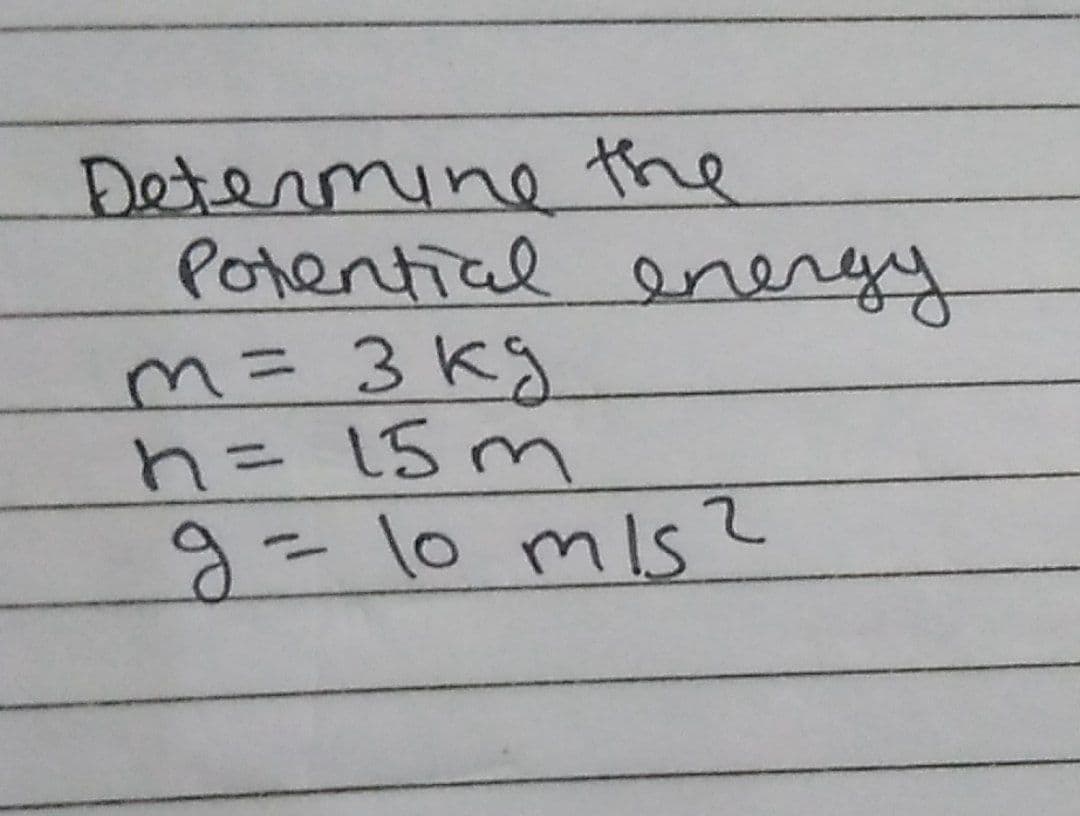 Determine the
Potential energy
m = 3 kg
h = 15 m
g = 10 m/s²